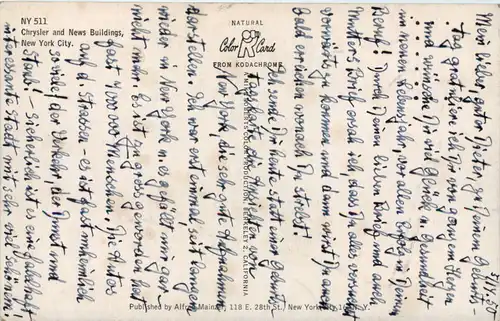 NY 511
Chrysler and News Buildings,
New York City.
NATURAL
Color Card
FROM KODACHROME
Mein lieber, guter Dieter, zu Deinem Geburts-
tag gratuliere ich Dir von ganzem Herzen
und wünsche Dir viel Glück u. Gesundheit
im neuen Lebensjahr, vor allem Erfolg in Deinem
Beruf! Durch Deinen lieben Brief und auch
Mutters Brief ersah ich, dass Du alles versuchst
vorwärts zu kommen und dann wirst Du auch
bald erreichen wonach Du strebst.
Ich sende Dir heute statt einer Geburts-
tagskarte die Ansichten von
New York die sehr gute Aufnahmen
darstellen. Ich war erst einmal seit langem
wieder in New York u. es gefällt mir gar
nicht mehr. Es ist zu gross geworden mit
fast 9 000 000 Menschen. Die Autos
auf d. Strassen - es ist fast unheimlich
so viel der Verkehr, der Dunst und
Staub! - Sicherlich ist es eine fabelhaft
interessante Stadt mit sehr viel schönem
COLOR PRODUCTION, BERKELEY 2, CALIFORNIA
Published by Alfred Mainzer, 118 E. 28th St., New York City, N.Y.